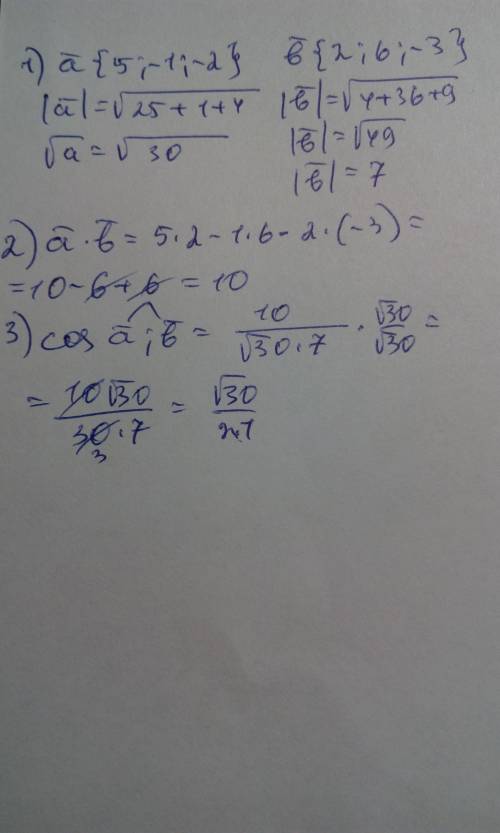 1) a̅ {5;-1;-2} b̅ {2;6;-3}
|a̅| = √25+1+4 |b̅| = √4+36+9
√a = √30 |b̅| = √49
|b̅| = 7
2) a̅ · b̅ = 5·2 - 1·6 - 2·(-3) =
= 10 - 6 + 6 = 10
3) cos a̅;b̅ = 10/(√30·7) · √30/√30 =
= 10√30/(30·7) = √30/21
3